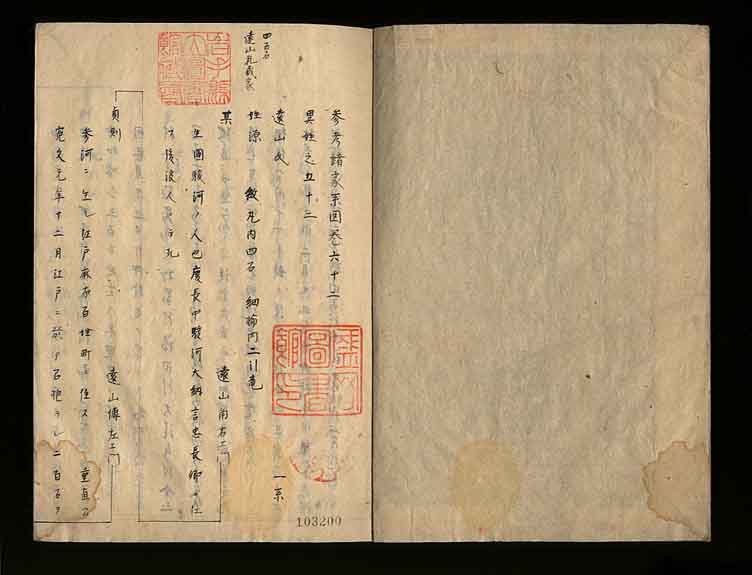 参考諸家系図巻六十二
異姓之五十三
遠山氏 一系
性源 紋丸内四石 細輪内二引竜
四百石
遠山礼蔵家
某 遠山角右エ
生国駿河ノ人也慶長中駿河大納言忠長卿ニ仕
後浪人
貞則 遠山傳左エ
参河ニ生レ江戸麻布百姓町ニ住ス
寛文元年十二月江戸ニ於テ召抱ラレ二百石ヲ
103200